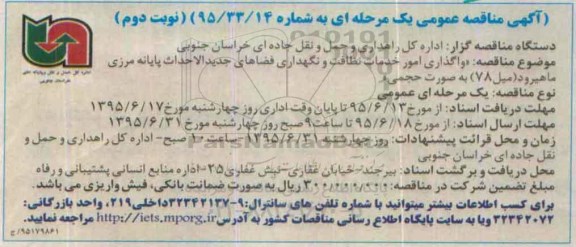 (آگهی مناقصه عمومی یک مرحله ای به شماره ۹۵/۳۳/۱۴) (نوبت دوم)
دستگاه مناقصه گزار: اداره کل راهداری و حمل و نقل جاده ای خراسان جنوبی
موضوع مناقصه: «واگذاری امور خدمات نظافت و نگهداری فضاهای جدیدالاحداث پایانه مرزی
ماهیرود(میل۷۸) به صورت حجمی»
نوع مناقصه: یک مرحله ای عمومی
مهلت دریافت اسناد: از مورخ ۹۵/۶/۱۳ تا پایان وقت اداری روز چهارشنبه مورخ ۱۳۹۵/۶/۱۷
مهلت ارسال اسناد: از مورخ ۹۵/۶/۱۸ تا ساعت ۹ صبح روز چهارشنبه مورخ ۱۳۹۵/۶/۳۱
زمان و محل قرائت پیشنهادات: روز چهارشنبه ۱۳۹۵/۶/۳۱ ساعت صبح- اداره کل راهداری و حمل و
نقل جاده ای خراسان جنوبی
محل دریافت و برگشت اسناد: بیرجند- خیابان غفاری- نبش غفاری۲۵- اداره منابع انسانی پشتیبانی و رفاه
مبلغ تضمین شرکت در مناقصه: ریال به صورت ضمانت بانکی، فیش واریزی می باشد.
برای کسب اطلاعات بیشتر میتوانید با شماره تلفن های سانترال: ۹-۳۲۳۴۲۱۳۷ داخلی ۲۱۹، واحد بازرگانی:
۳۲۳۴۲۰۷۲ ویا به سایت پایگاه اطلاع رسانی مناقصات کشور به آدرس http://iets.mporg.ir مراجعه نمایید.
۹۵۱۷۹۸۶۱/ح